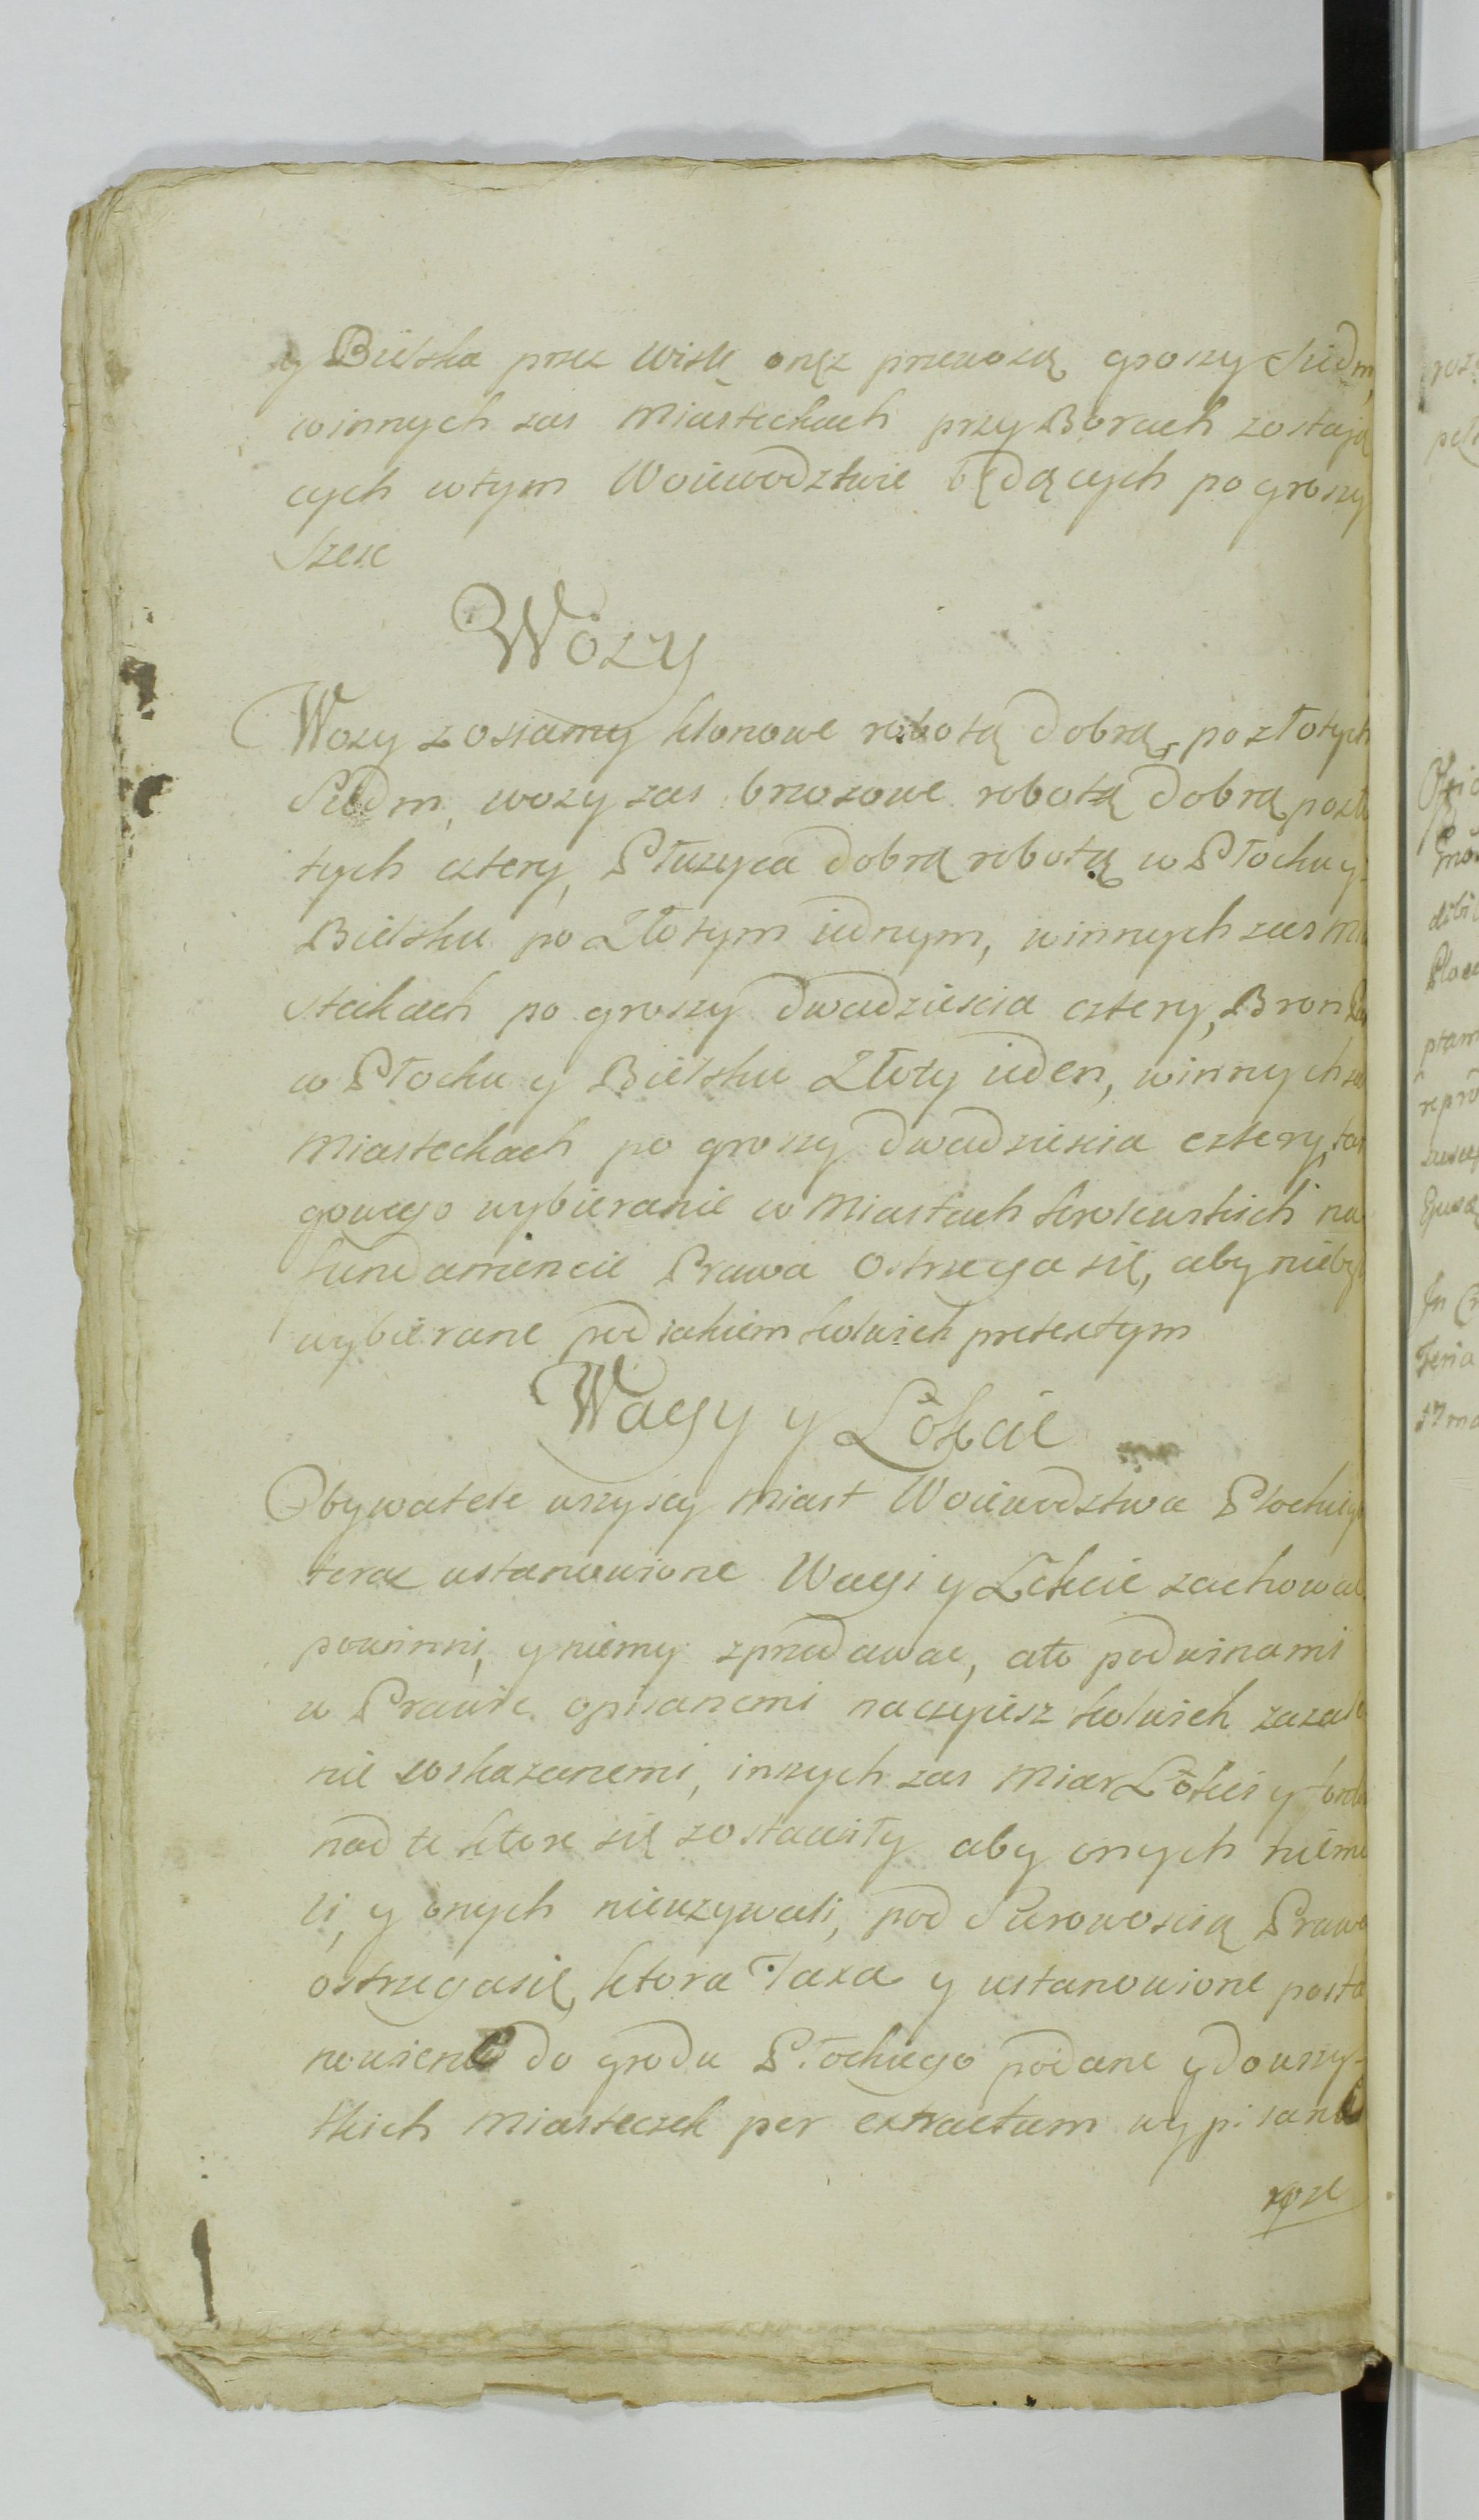 y Bielska przez Wisłę onęz przewozą groszy Siedm,
winnych zas Miasteckach przy Borach zostają
cych wtym Woiewodztwie będących po groszy
Szesc
Wozy
Wozy zosiamy klonowe robotą dobrą, po złotych
Siedm, wozy zas brzozowe robotą dobrą pozło
tych cztery, Płuzyca dobrą robotą w Płocku y
Bielsku po Złotym iednym, winnych zas Mia
steckach po groszy dwadziescia cztery, Bron
w Płocku y Bielsku Złoty ieden, winnych zas
Miasteckach po groszy dwadziescia cztery, tar
gowego wybieranie w Miastach krolewskich na
fundamencie Prawa Ostrzega się, aby nieby
wybierane pod iakiem kolwiek pretextym
Wagy y Łokcie
Obywatele wszyscy Miast Woiewodztwa Płockiego
teraz ustanowione Wagi y Łokcie zachowac
powinni, y niemy zprzedawac, ato podwinami
w Prawie opisanemi naczyiesz kolwiek zazale
nie wskazanemi, inszych zas Miar Łokci y
nad te ktore się zostawiły aby onych niemie
li, y onych nieuzywali, pod Surowoscią Prawa
ostrzegasię, ktora Taxa y ustanowione posta
nowienie do grodu Płockiego podane ydowszy-
tkich Miasteczek per extractum wypisane